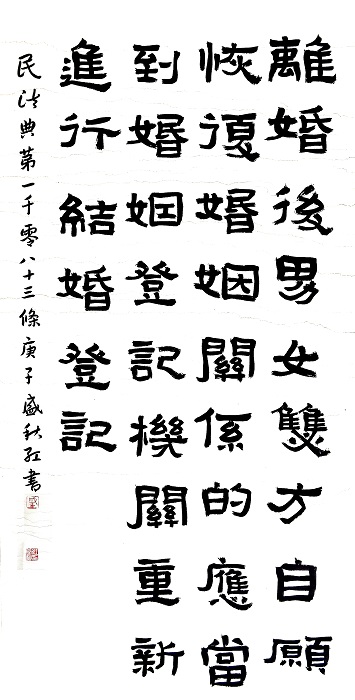 離婚後男女雙方自願
恢復婚姻關係的應當
到婚姻登記機關重新
進行結婚登記
民法典第一千零八十三條庚子盛秋紅書